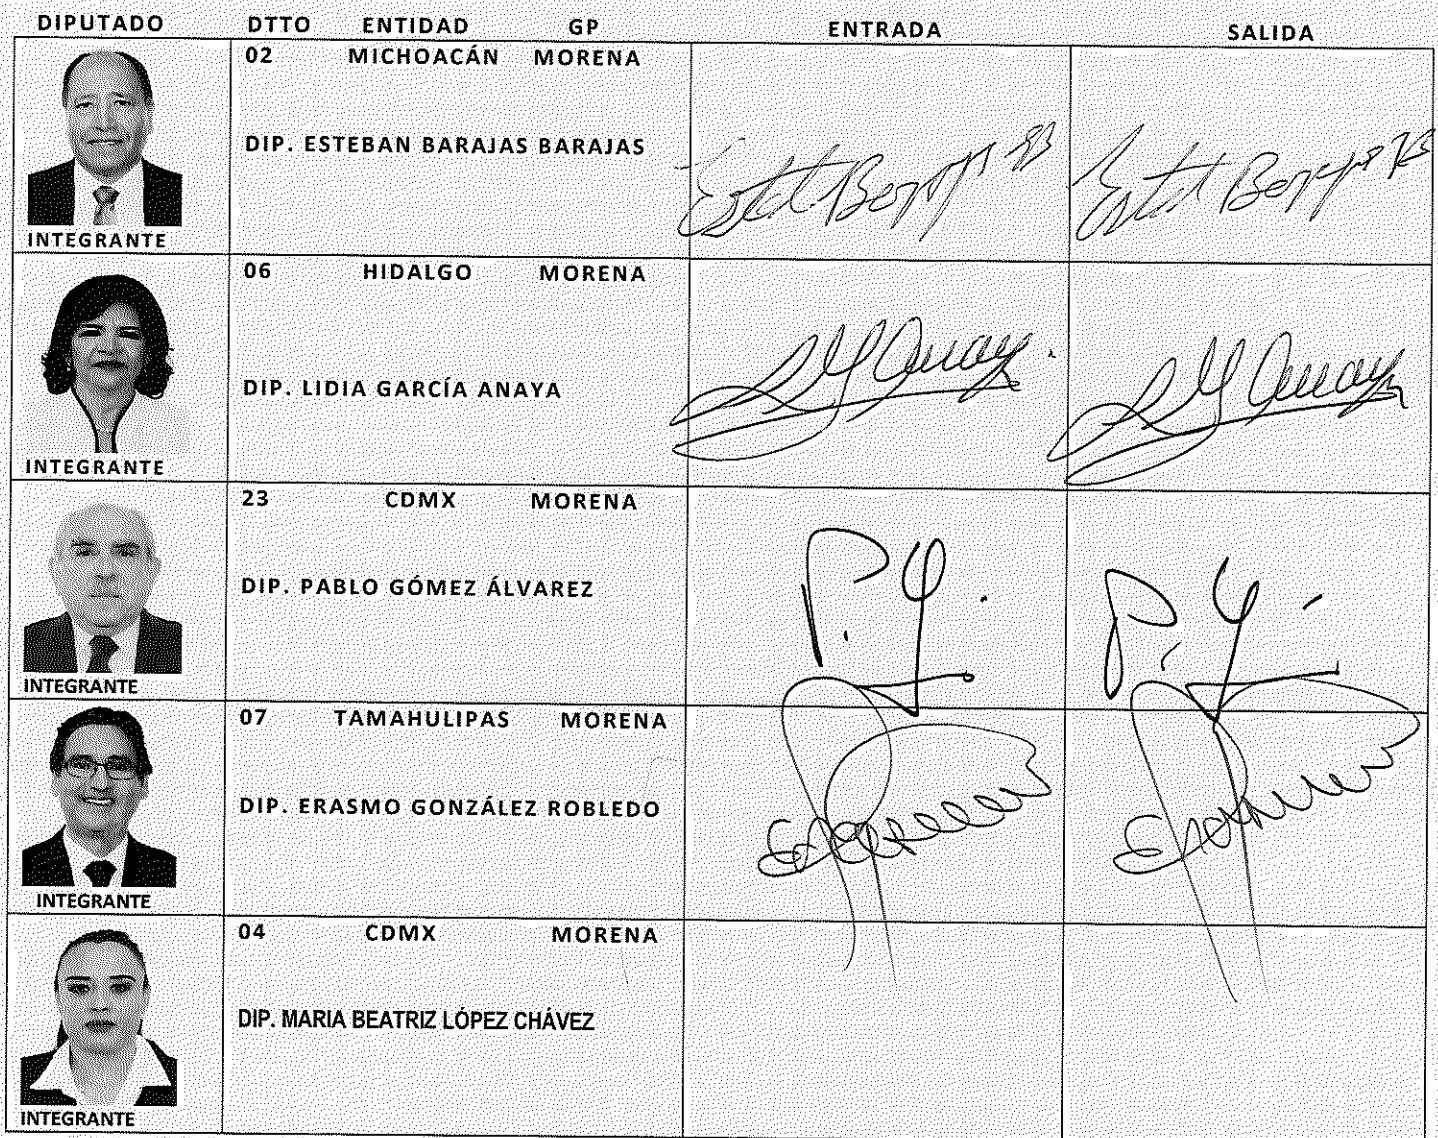 DIPUTADO DTTO ENTIDAD GP ENTRADA SALIDA
02 MICHOACÁN MORENA
DIP. ESTEBAN BARAJAS BARAJAS
INTEGRANTE
06 HIDALGO MORENA
DIP. LIDIA GARCÍA ANAYA
INTEGRANTE
23 CDMX MORENA
DIP. PABLO GÓMEZ ÁLVAREZ
P. G.
P. G.
INTEGRANTE
07 TAMAHULIPAS MORENA
DIP. ERASMO GONZÁLEZ ROBLEDO
INTEGRANTE
04 CDMX MORENA
DIP. MARIA BEATRIZ LÓPEZ CHÁVEZ
INTEGRANTE